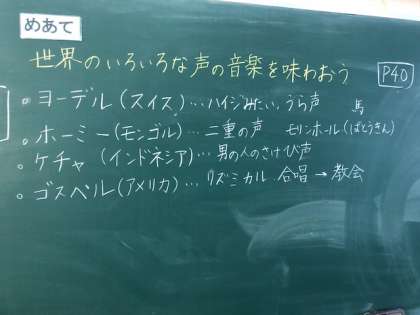 めあて
世界のいろいろな声の音楽を味わおう P40
。ヨーデル(スイス)…ハイジみたい、うら声 馬
。ホーミー(モンゴル)…二重の声 モリンホール(ばとうきん)
。ケチャ(インドネシア)…男の人のさけび声
。ゴスペル(アメリカ)…リズミカル 合唱→教会